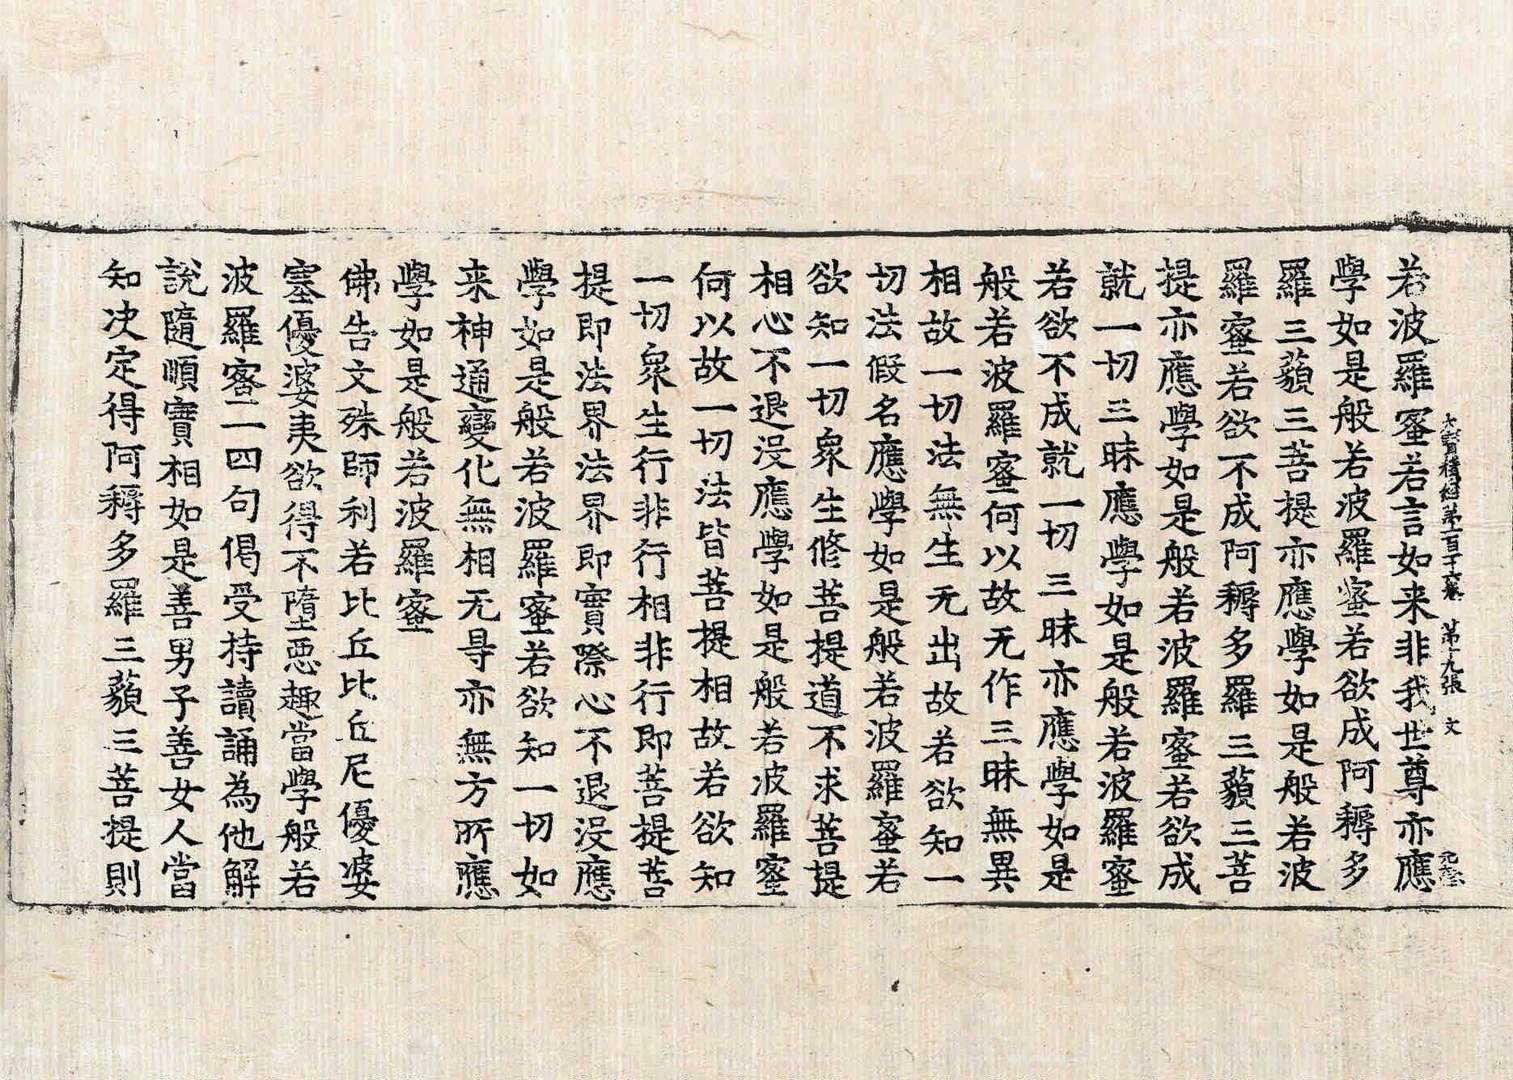 若波羅蜜若言如来非我世尊亦應
大寶積經第一百十六卷 第十九張 文
學如是般若波羅蜜若欲成阿耨多
羅三藐三菩提亦應學如是般若波
羅蜜若欲不成阿耨多羅三藐三菩
提亦應學如是般若波羅蜜若欲成
就一切三昧應學如是般若波羅蜜
若欲不成就一切三昧亦應學如是
般若波羅蜜何以故无作三昧無異
相故一切法無生无出故若欲知一
切法假名應學如是般若波羅蜜若
欲知一切衆生修菩提道不求菩提
相心不退没應學如是般若波羅蜜
何以故一切法皆菩提相故若欲知
一切衆生行非行相非行即菩提菩
提即法界法界即實際心不退没應
學如是般若波羅蜜若欲知一切如
来神通變化無相无㝵亦無方所應
學如是般若波羅蜜
佛告文殊師利若比丘比丘尼優婆
塞優婆夷欲得不墮惡趣當學般若
波羅蜜一四句偈受持讀誦為他解
説隨順實相如是善男子善女人當
知决定得阿耨多羅三藐三菩提則